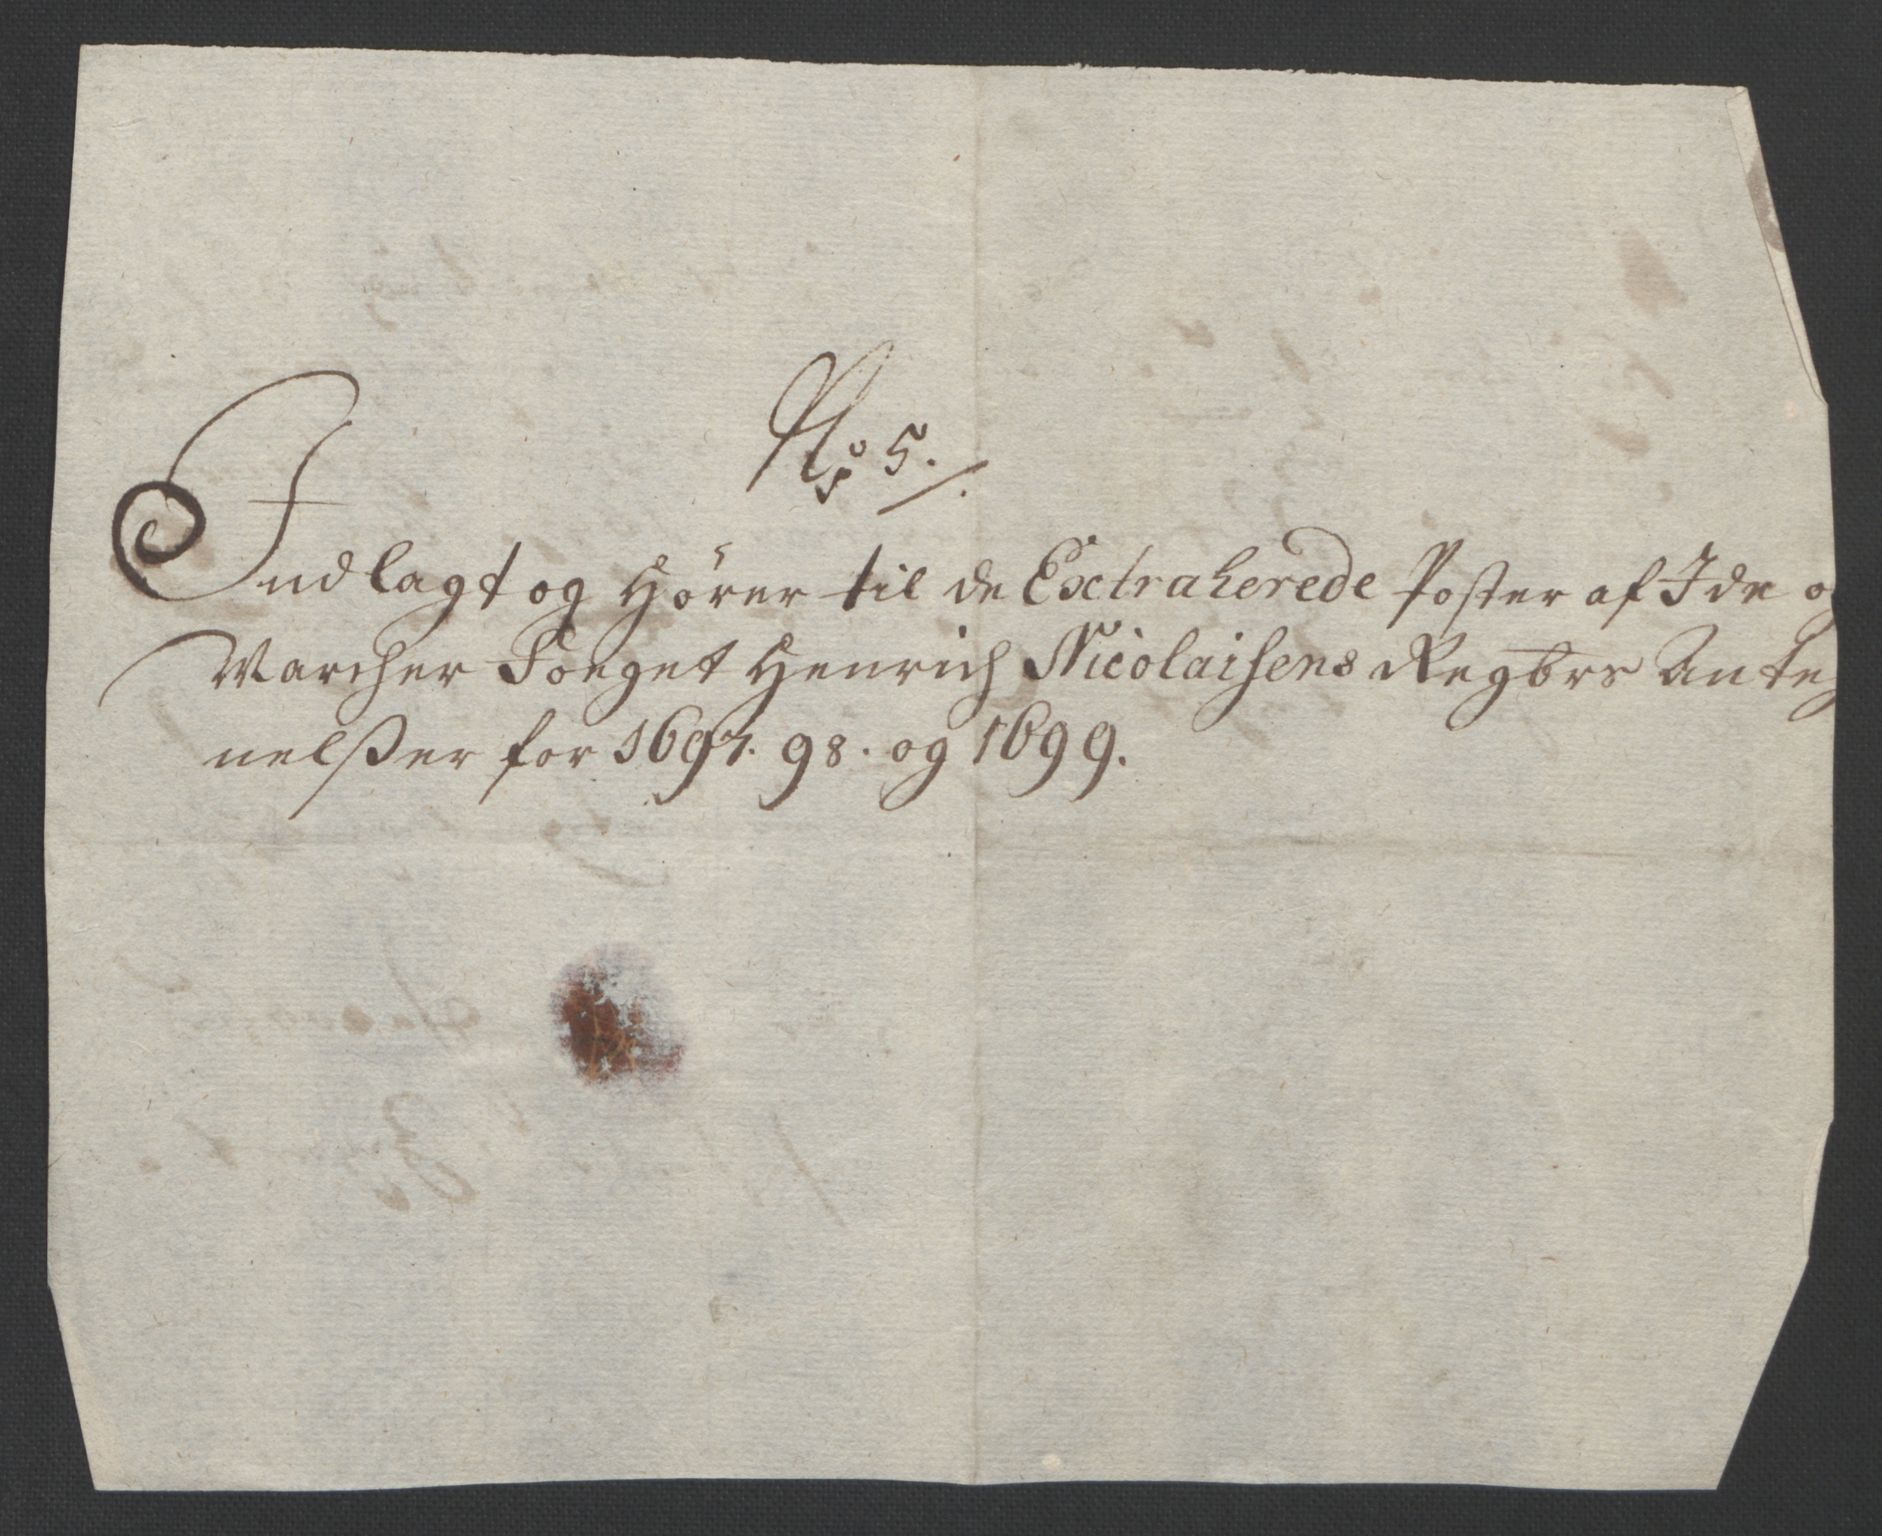 No 5.
Indlagt og hörer til de Extraherede Poster af Ide o
Marcher Foeget Henrich Nicolaisens Regbrs Anteg
nelßer for 1697. 98. og 1699.